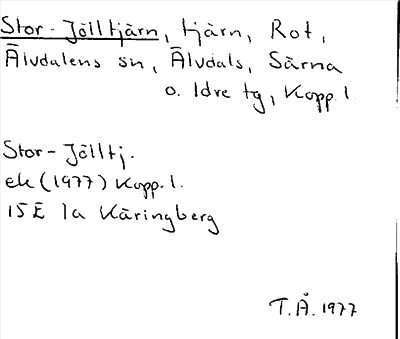 Stor-Jölltjärn, tjärn, Rot,
Älvdalens sn, Älvdals, Särna
o. Idre tg, Kopp. l.
Stor-Jölltj.
ek (1977) Kopp. l.
15E 1a Käringberg
T.Å. 1977